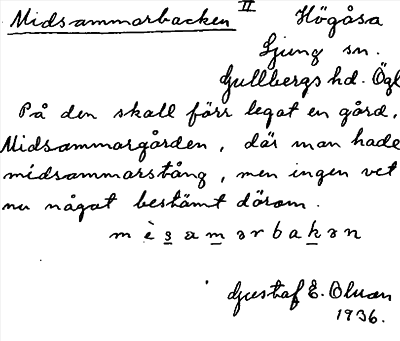 Midsammarbacken II Högåsa
Ljung sn.
Gullbergs hd. Ögl
På den skall förr legat en gård,
Midsammargården, där man hade
midsammarstång, men ingen vet
nu något bestämt därom.
mèsamərbakən
Gustaf E. Olson
1936.